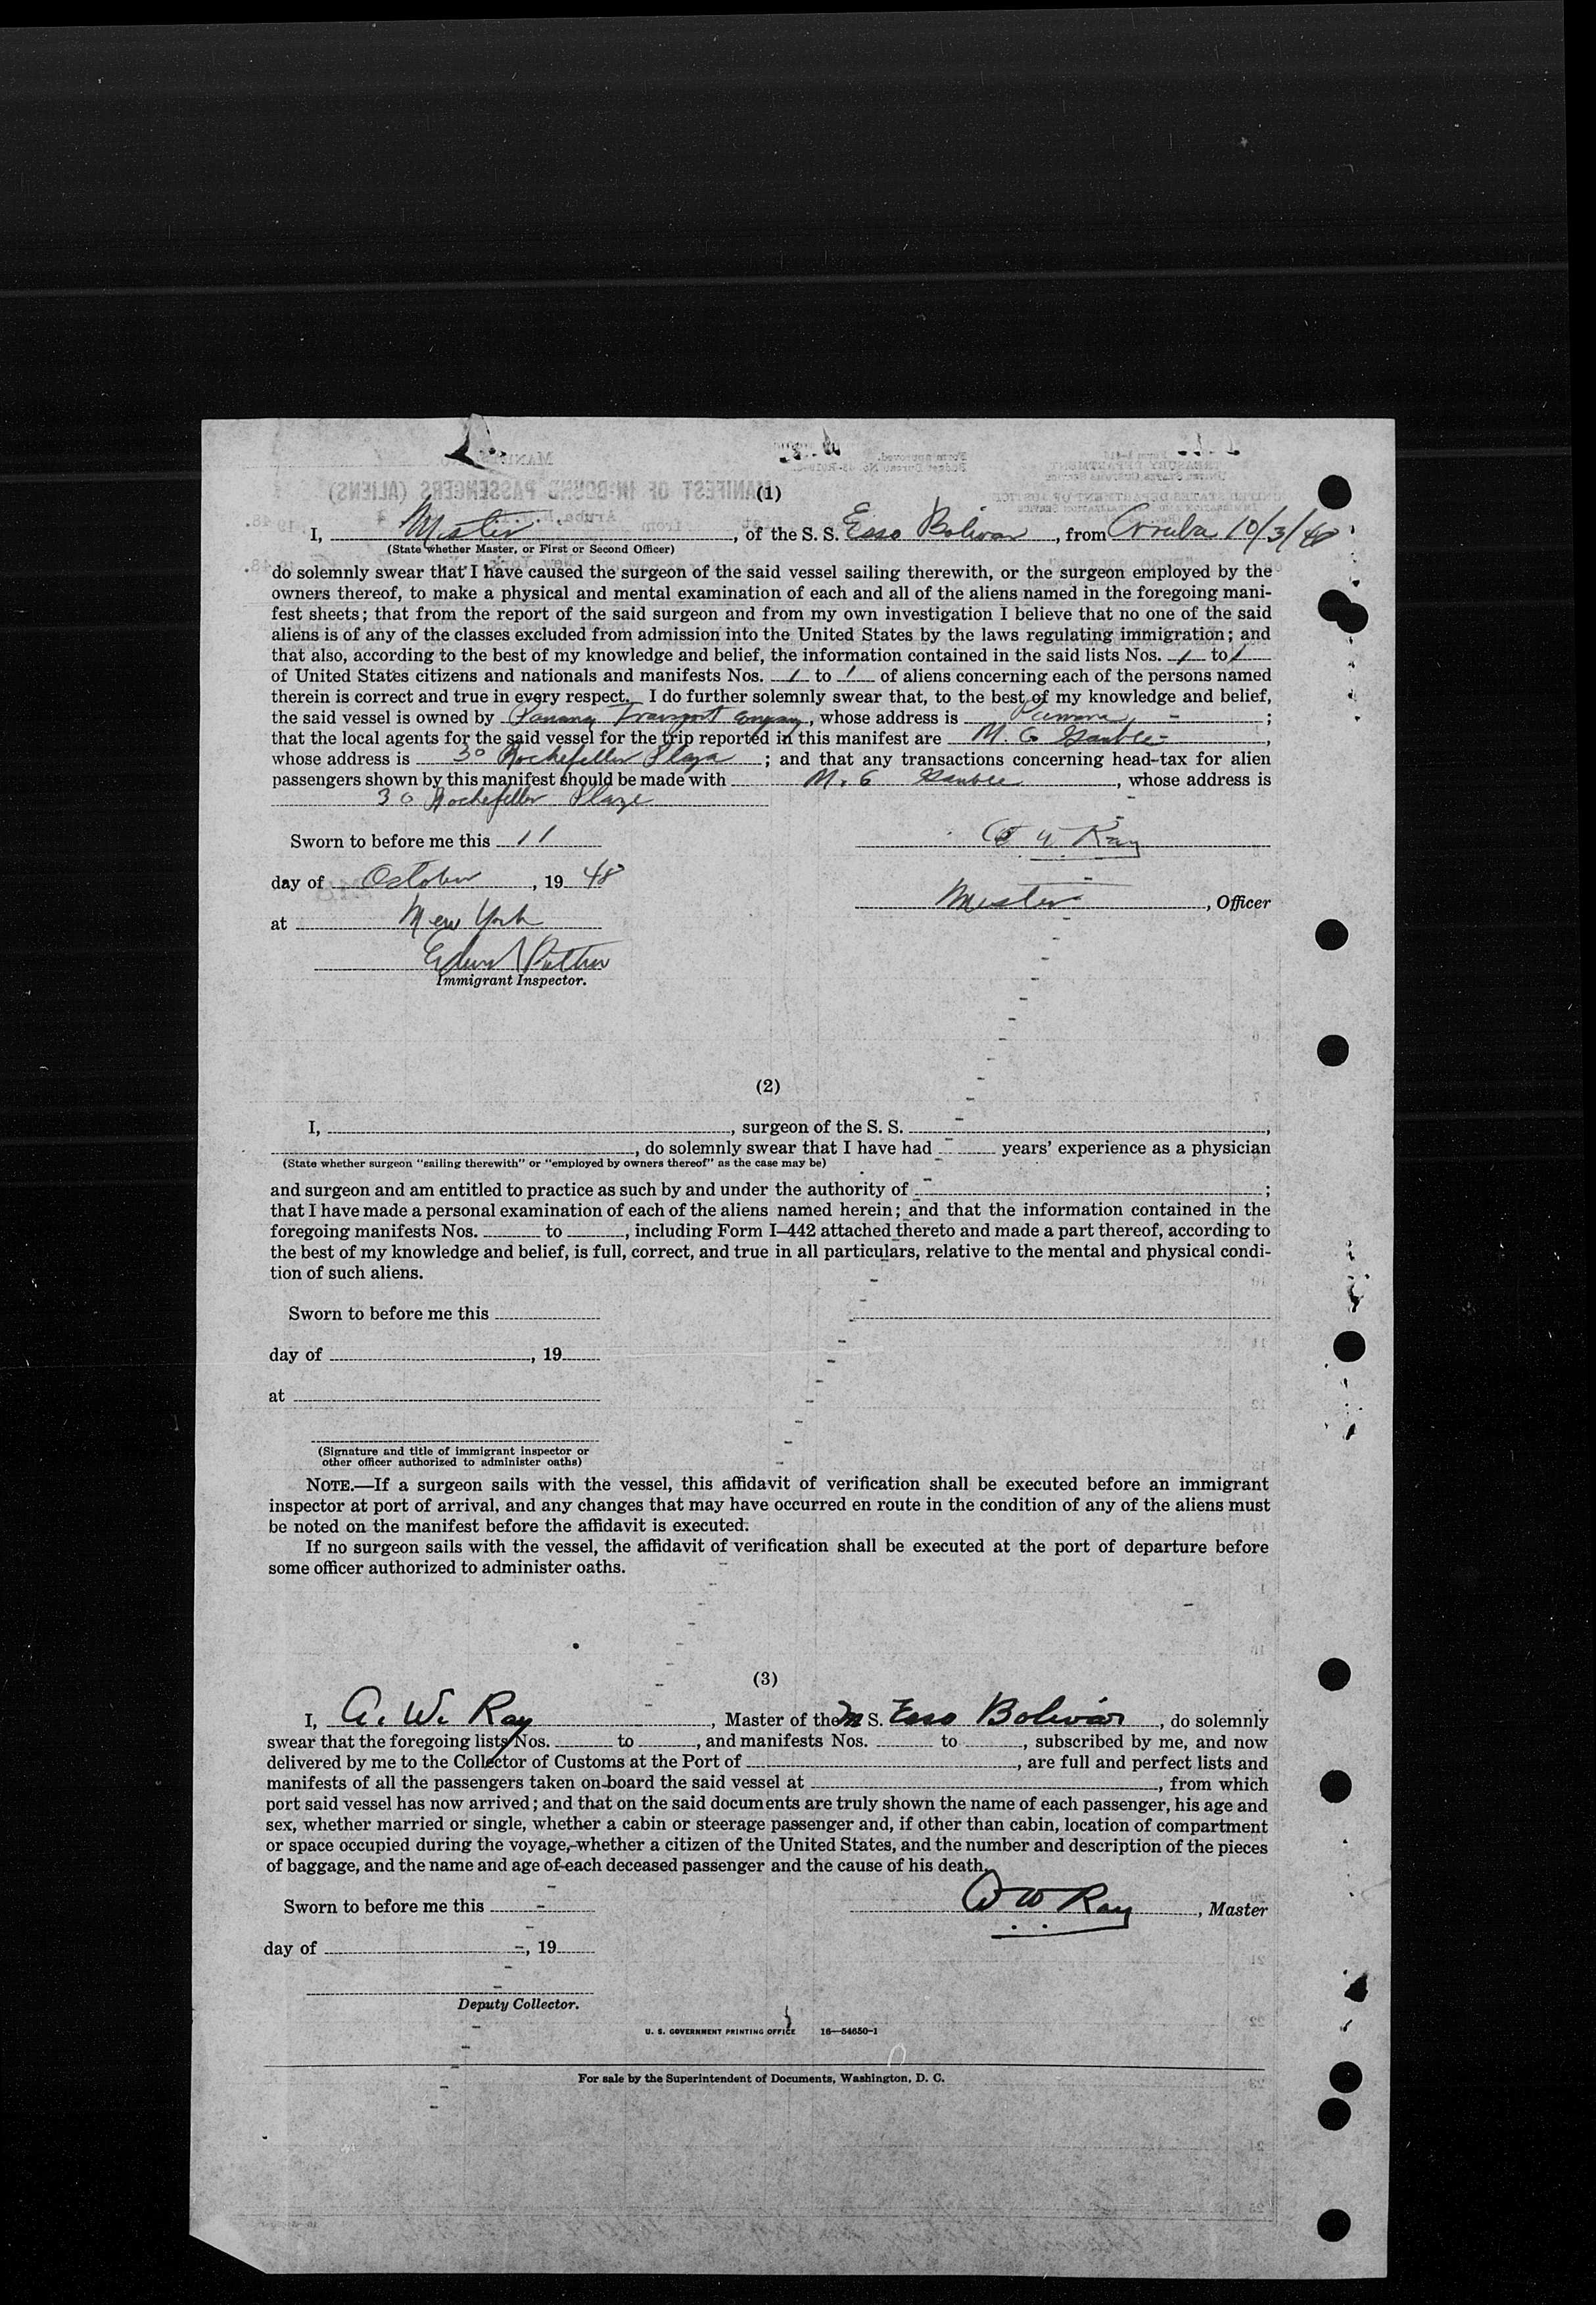 (1)
I, Master, of the S. S. Esso Bolivar, from Arruba 10/3/48
(State whether Master, or First or Second Officer)
do solemnly swear that I have caused the surgeon of the said vessel sailing therewith, or the surgeon employed by the
owners thereof, to make a physical and mental examination of each and all of the aliens named in the foregoing mani-
fest sheets; that from the report of the said surgeon and from my own investigation I believe that no one of the said
aliens is of any of the classes excluded from admission into the United States by the laws regulating immigration; and
that also, according to the best of my knowledge and belief, the information contained in the said lists Nos. 1 to 1
of United States citizens and nationals and manifests Nos. 1 to 1 of aliens concerning each of the persons named
therein is correct and true in every respect. I do further solemnly swear that, to the best of my knowledge and belief,
the said vessel is owned by Panama Transport Company, whose address is Panama ;
that the local agents for the said vessel for the trip reported in this manifest are M. G. ,
whose address is 30 Rockefeller Plaza ; and that any transactions concerning head-tax for alien
passengers shown by this manifest should be made with M. G , whose address is
30 Rockefeller Plaza
Sworn to before me this 11
A W Ray
day of October, 19 48
Master, Officer
at New York
Immigrant Inspector.
(2)
I, , surgeon of the S. S. ,
, do solemnly swear that I have had years' experience as a physician
(State whether surgeon "sailing therewith" or "employed by owners thereof" as the case may be)
and surgeon and am entitled to practice as such by and under the authority of ;
that I have made a personal examination of each of the aliens named herein; and that the information contained in the
foregoing manifests Nos. to , including Form I-442 attached thereto and made a part thereof, according to
the best of my knowledge and belief, is full, correct, and true in all particulars, relative to the mental and physical condi-
tion of such aliens.
Sworn to before me this
day of , 19
at
(Signature and title of immigrant inspector or
other officer authorized to administer oaths)
NOTE.—If a surgeon sails with the vessel, this affidavit of verification shall be executed before an immigrant
inspector at port of arrival, and any changes that may have occurred en route in the condition of any of the aliens must
be noted on the manifest before the affidavit is executed.
If no surgeon sails with the vessel, the affidavit of verification shall be executed at the port of departure before
some officer authorized to administer oaths.
(3)
I, A. W. Ray, Master of the M S. Esso Bolivar, do solemnly
swear that the foregoing lists Nos. to , and manifests Nos. to , subscribed by me, and now
delivered by me to the Collector of Customs at the Port of , are full and perfect lists and
manifests of all the passengers taken on board the said vessel at , from which
port said vessel has now arrived; and that on the said documents are truly shown the name of each passenger, his age and
sex, whether married or single, whether a cabin or steerage passenger and, if other than cabin, location of compartment
or space occupied during the voyage, whether a citizen of the United States, and the number and description of the pieces
of baggage, and the name and age of each deceased passenger and the cause of his death.
Sworn to before me this
A W Ray, Master
day of , 19
Deputy Collector.
U. S. GOVERNMENT PRINTING OFFICE 16—54650-1
For sale by the Superintendent of Documents, Washington, D. C.